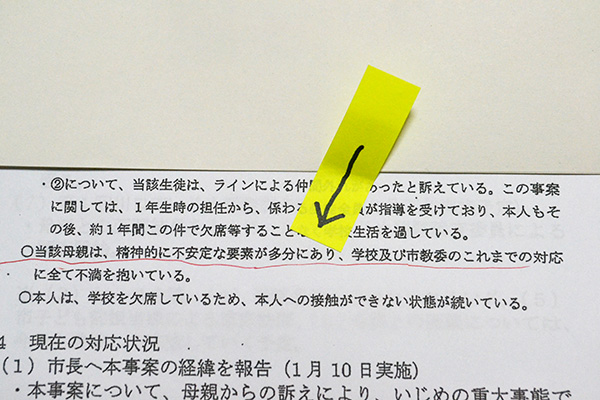 ・②について、当該生徒は、ラインによる仲間外 があったと訴えている。この事案
に関しては、1年生時の担任から、係わる 全員が指導を受けており、本人もそ
の後、約1年間この件で欠席等すること 学校生活を過している。
〇当該母親は、精神的に不安定な要素が多分にあり、学校及び市教委のこれまでの対応
に全て不満を抱いている。
〇本人は、学校を欠席しているため、本人への接触ができない状態が続いている。
4 現在の対応状況
(1)市長へ本事案の経緯を報告(1月10日実施)
・本事案について、母親からの訴えにより、いじめの重大事態で